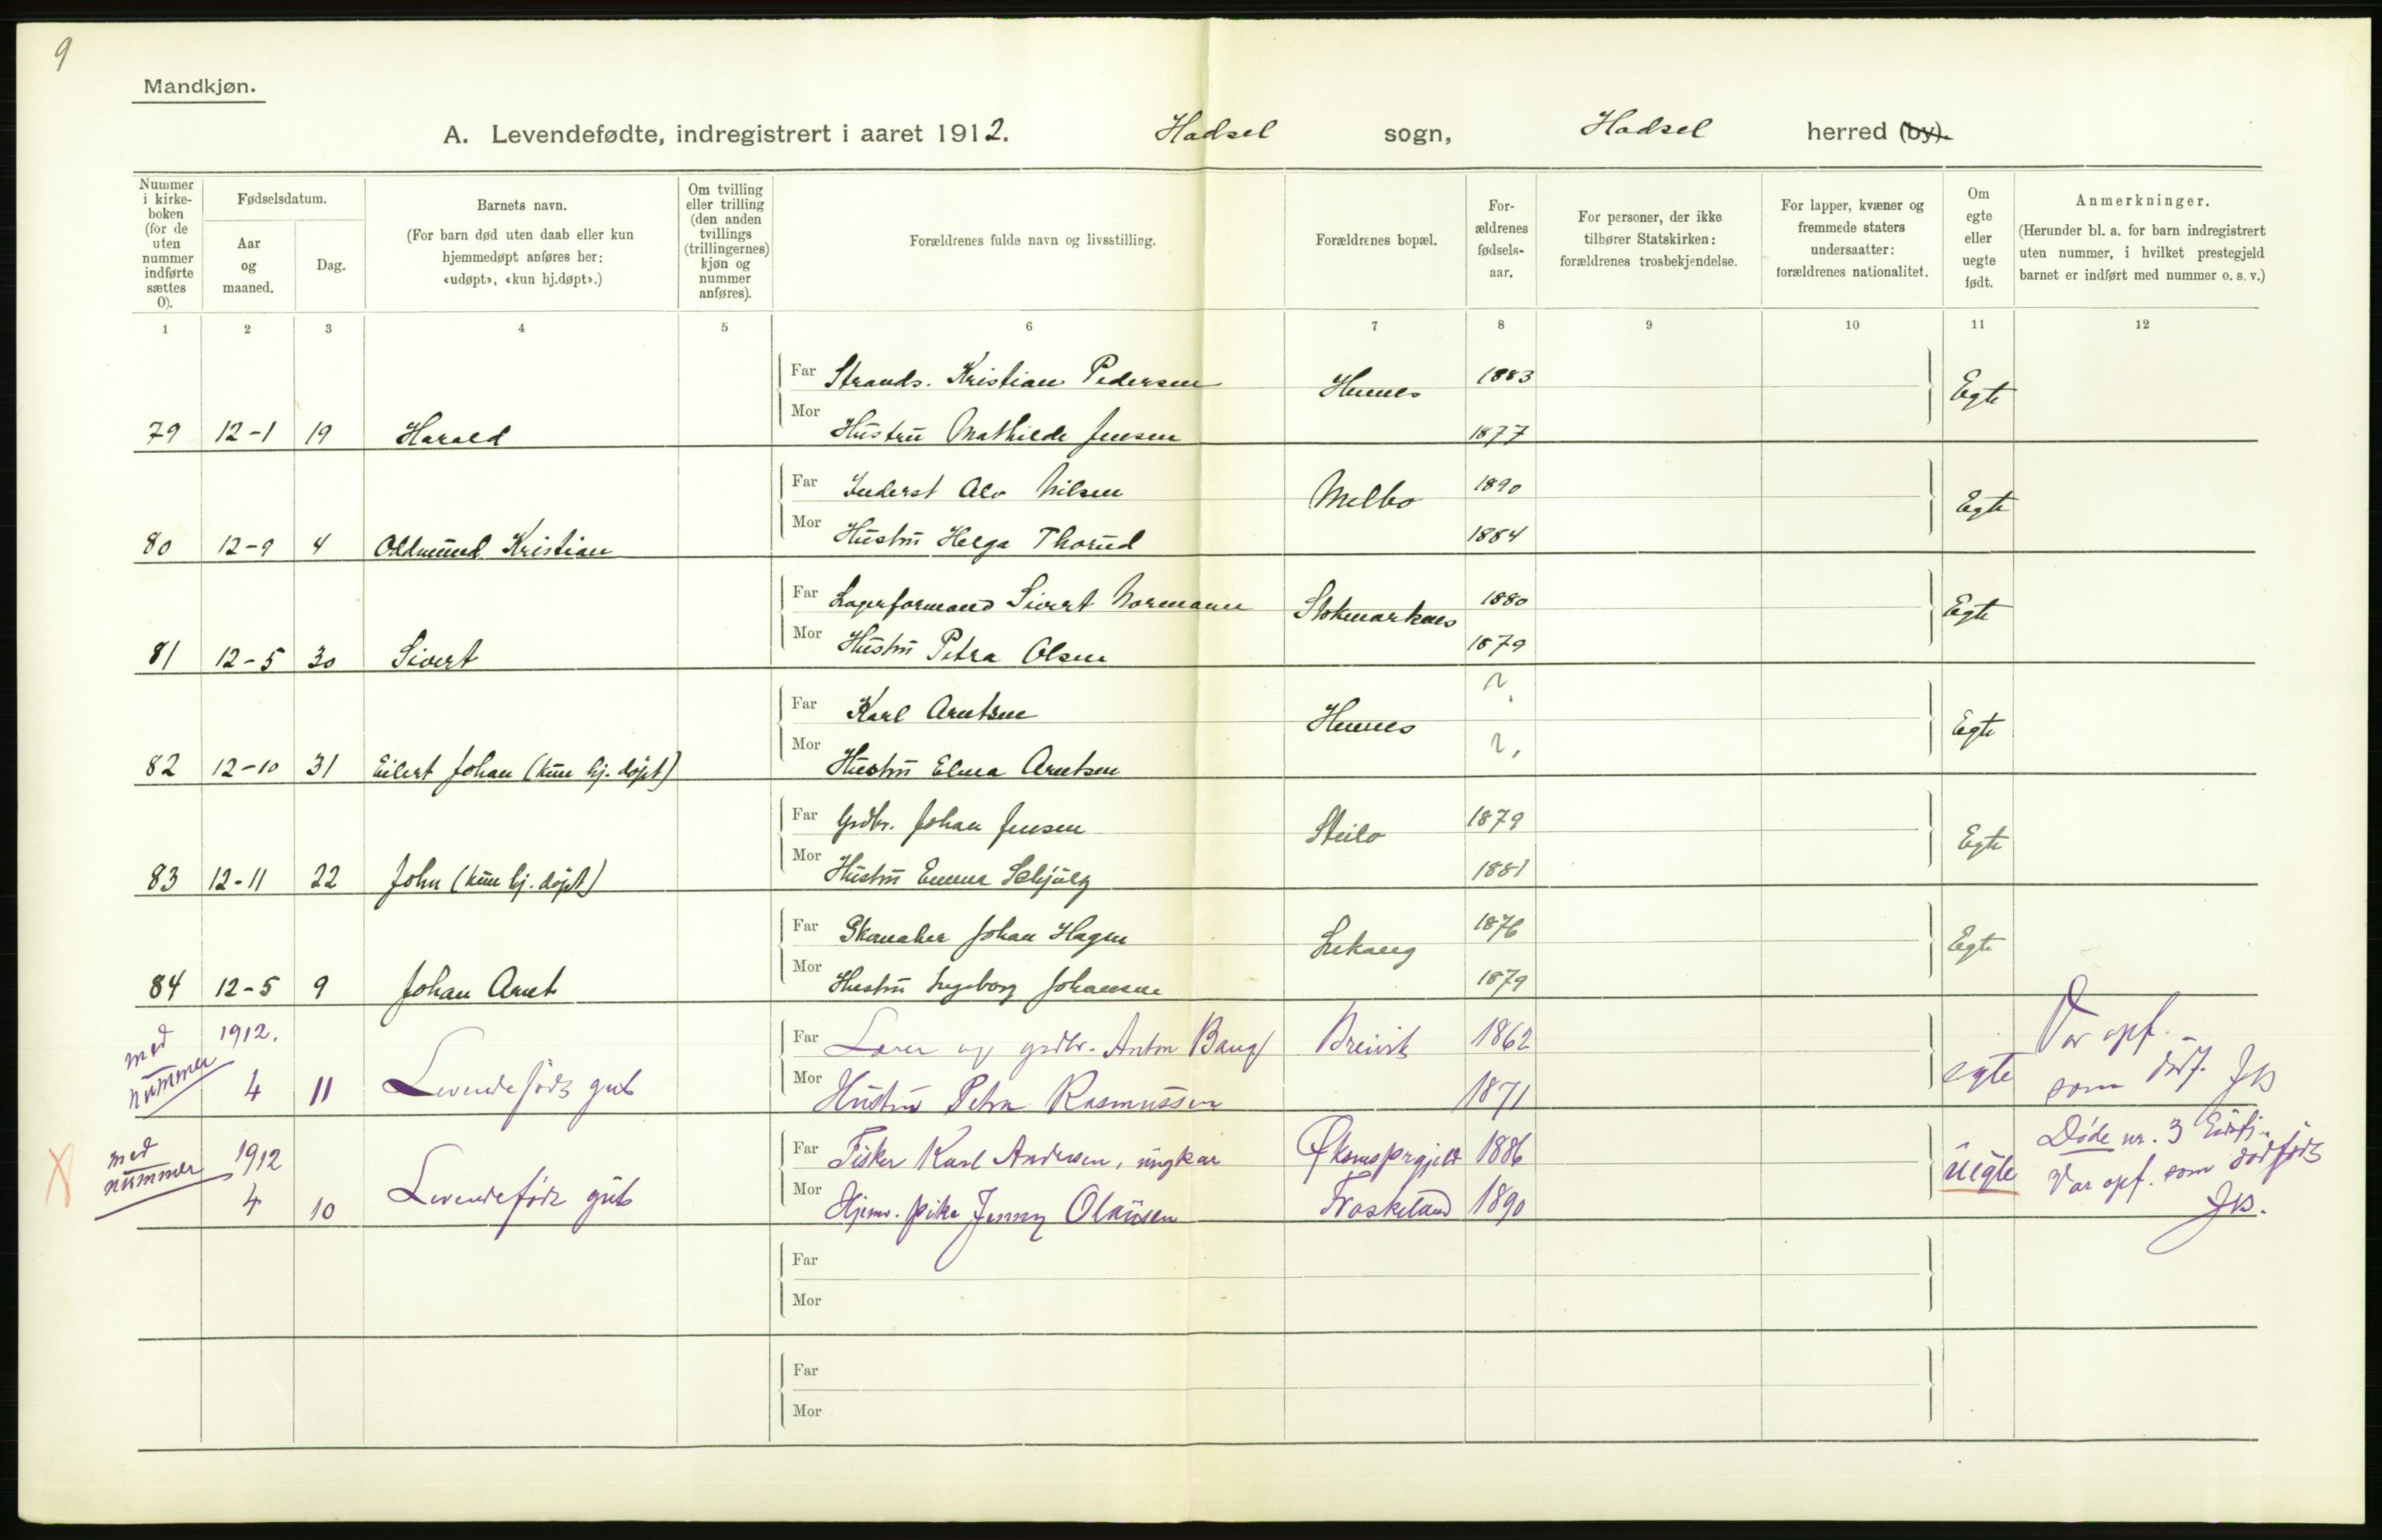 9
Mandkjøn.
A. Levendefødte, indregistrert i aaret 1912. Hadsel sogn, Hadsel herred (by).
Nummer i kirke-boken (for de uten nummer indførte sættes 0).
Fødselsdatum.
Aar og maaned.
Dag.
Barnets navn.
(For barn død uten daab eller kun hjemmedøpt anføres her: «udøpt», «kun hj.døpt».)
Om tvilling eller trilling (den anden tvillings (trillingernes) kjøn og nummer anføres).
Forældrenes fulde navn og livsstilling.
Forældrenes bopæl.
For-ældrenes fødsels-aar.
For personer, der ikke tilhører Statskirken: forældrenes trosbekjendelse.
For lapper, kvæner og fremmede staters undersaatter: forældrenes nationalitet.
Om egte eller uegte født.
Anmerkninger.
(Herunder bl. a. for barn indregistrert uten nummer, i hvilket prestegjeld barnet er indført med nummer o. s. v.)
1 2 3 4 5 6 7 8 9 10 11 12
Far Strands. Kristian Pedersen Hennes 1883 Egte
79 12-1 19 Harald Mor Hustru Mathilde Jensen 1877
Far Inderst Alv Nilsen Melbo 1890 Egte
80 12-9 4 Oddmund Kristian Mor Hustru Helga Thorud 1884
Far Lagerformand Sivert Normann Stokmarknes 1880 Egte
81 12-5 30 Sivert Mor Hustru Petra Olsen 1879
Far Karl Arntsen Hennes ? Egte
82 12-10 31 Eilert Johan (kun hj. døpt) Mor Hustru Elna Arntsen ?
Far Grdbr. Johan Jensen Steilo 1879 Egte
83 12-11 22 John (kun hj. døpt) Mor Hustru Emma Schjølg 1881
Far Skomaker Johan Hagen Lekang 1876 Egte
84 12-5 9 Johan Arnt Mor Hustru Ingeborg Johansen 1879
med nummer 1912. Far Lærer og grdbr. Anton Bang Breivik 1862 egte Var opf.
4 11 Levendefødt gut Mor Hustru Petra Rasmussen 1871 som dødf.
med nummer 1912 Far Fisker Karl Andersen, ungkar Øksnes prgjeld 1886 uegte Døde nr. 3
4 10 Levendefødt gut Mor Hjemv. pike Jenny Olausen Fraskeland 1890 Var opf. som dødfødt
Far
Mor
Far
Mor